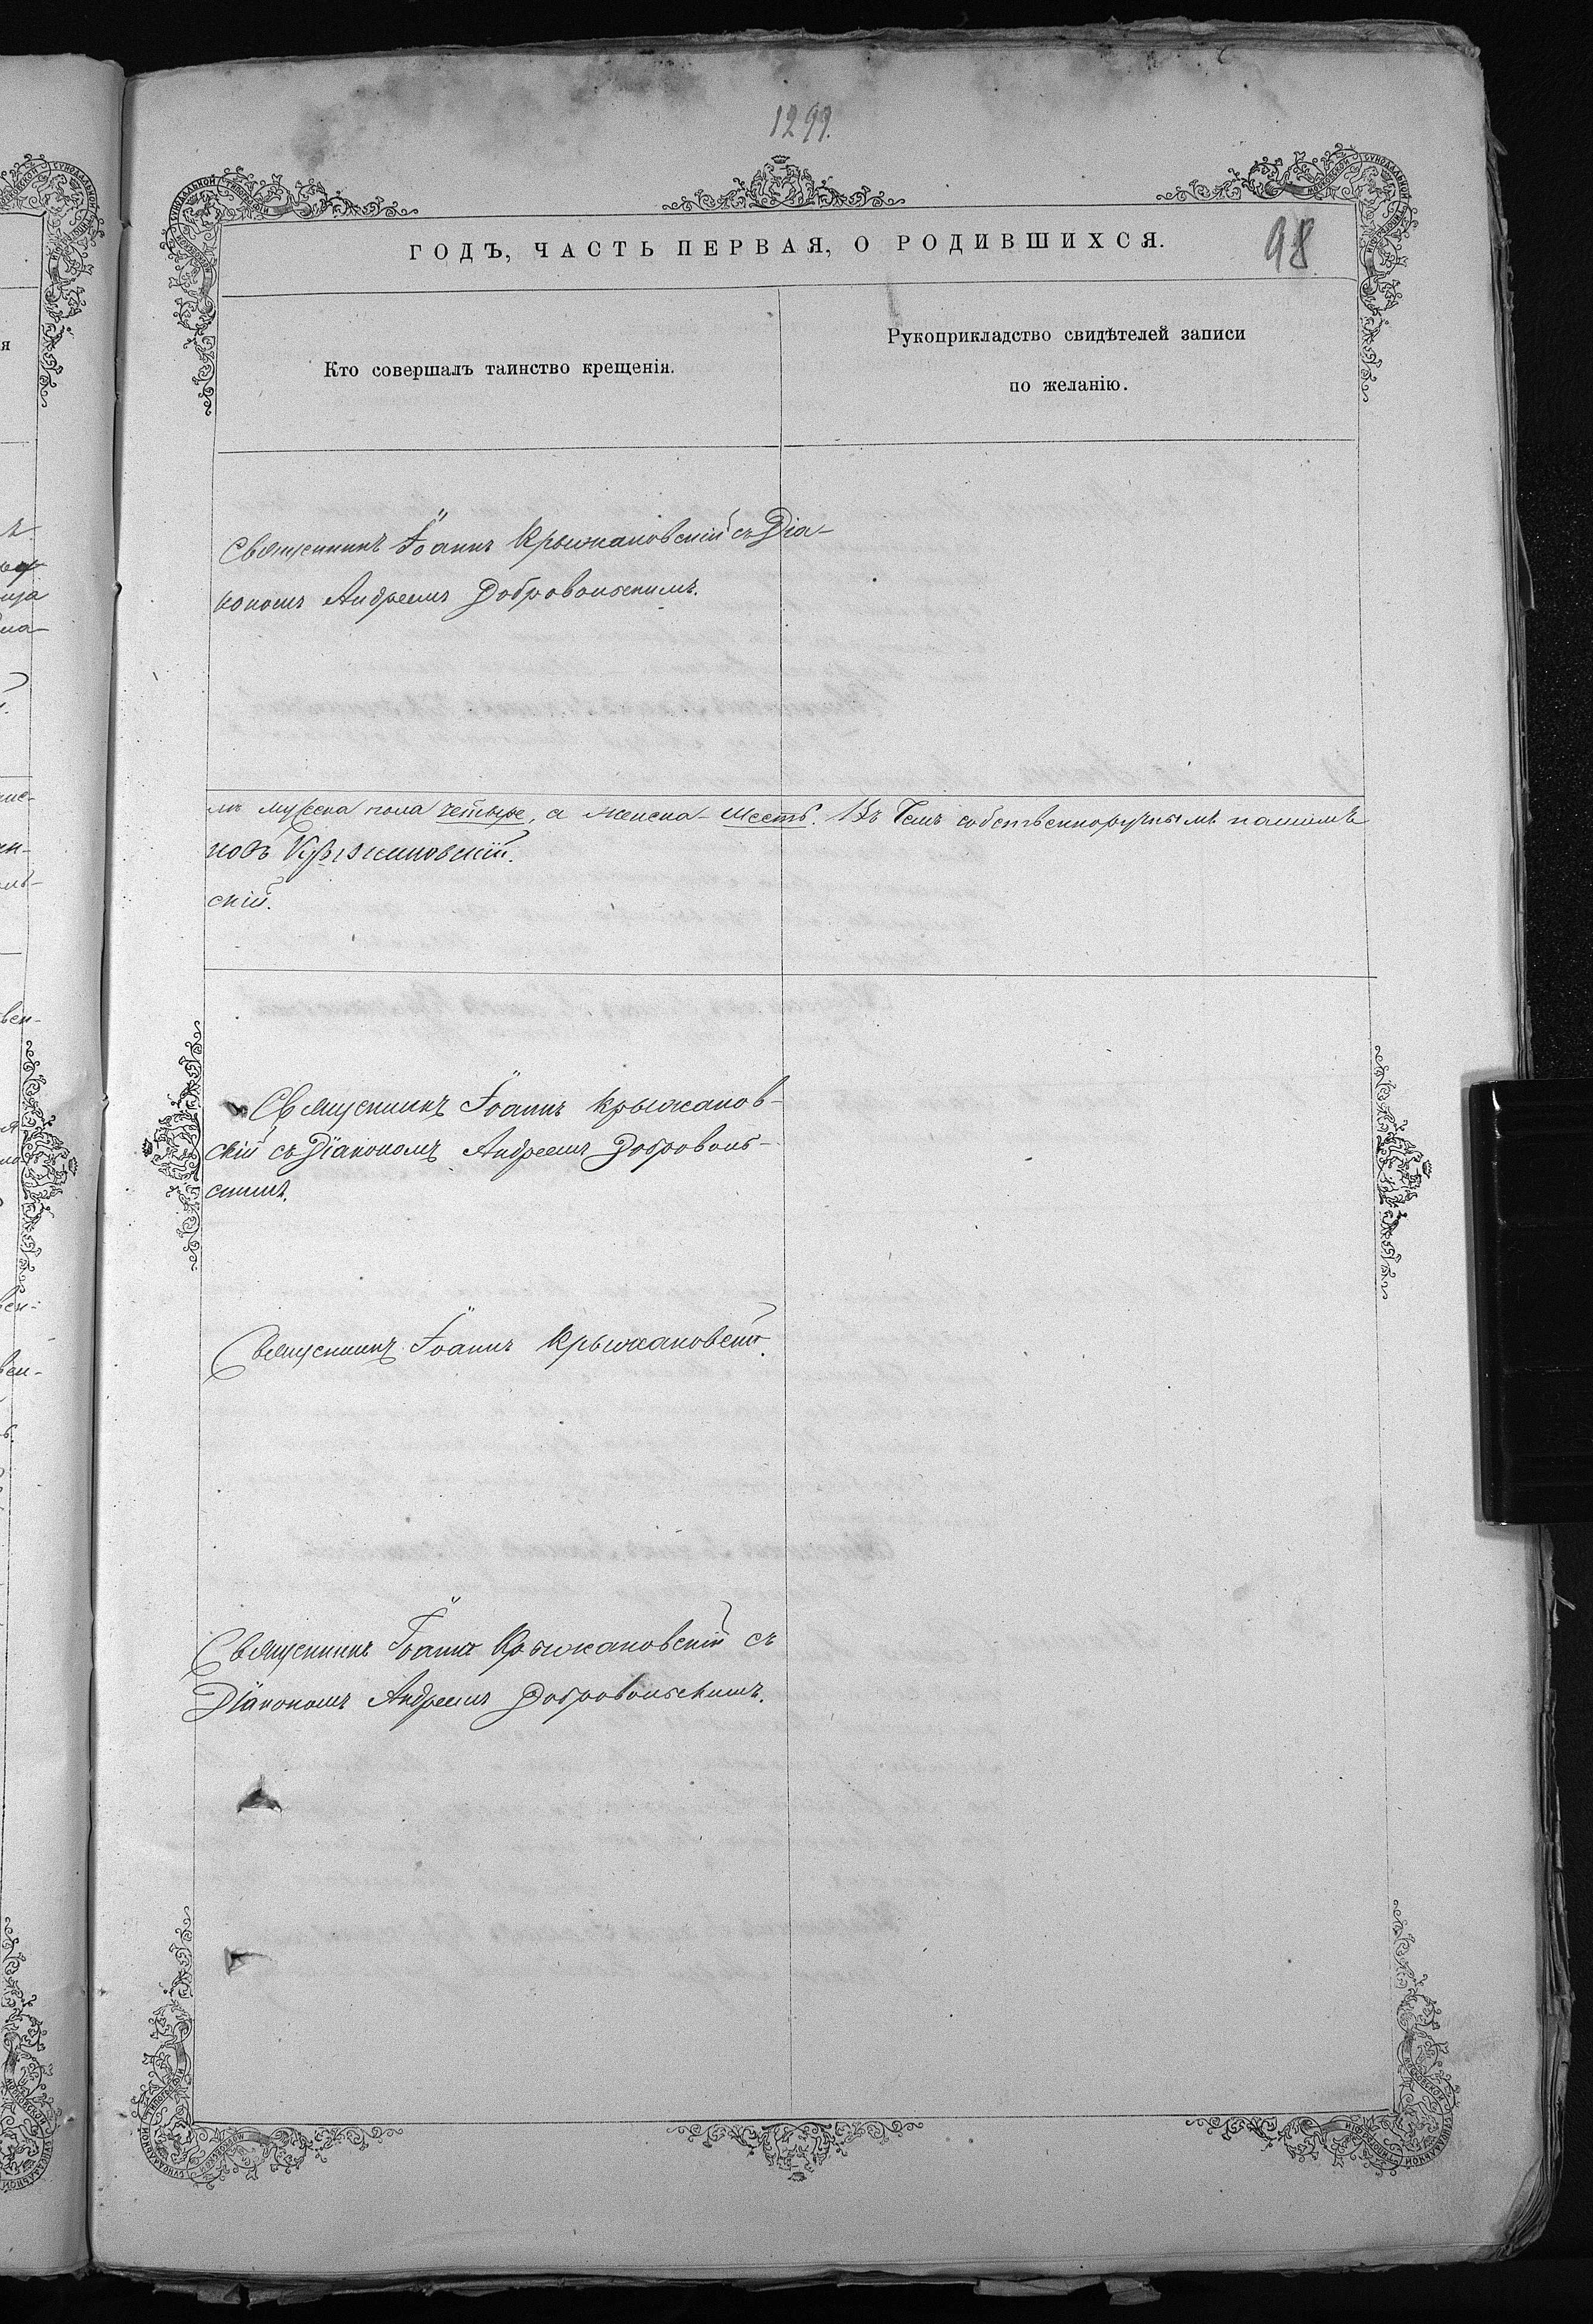 1299.
ГОДЪ, ЧАСТЬ ПЕРВАЯ, О РОДИВШИХСЯ.
98
Кто совершалъ таинство крещенія.
Рукоприкладство свидѣтелей записи
по желанію.
Священникъ Іоаннъ Крыжановскій съ Діа-
кономъ Андреемъ Добровольскимъ.
мужеска пола четыре, а женска - шесть. Въ чемъ собственноручнымъ нашимъ
скій.
Священникъ Іоаннъ Крыжанов-
скій съ Діакономъ Андреемъ Доброволь-
скимъ.
Священникъ Іоаннъ Крыжановскій.
Священникъ Іоаннъ Крыжановскій съ
Діакономъ Андреемъ Добровольскимъ.